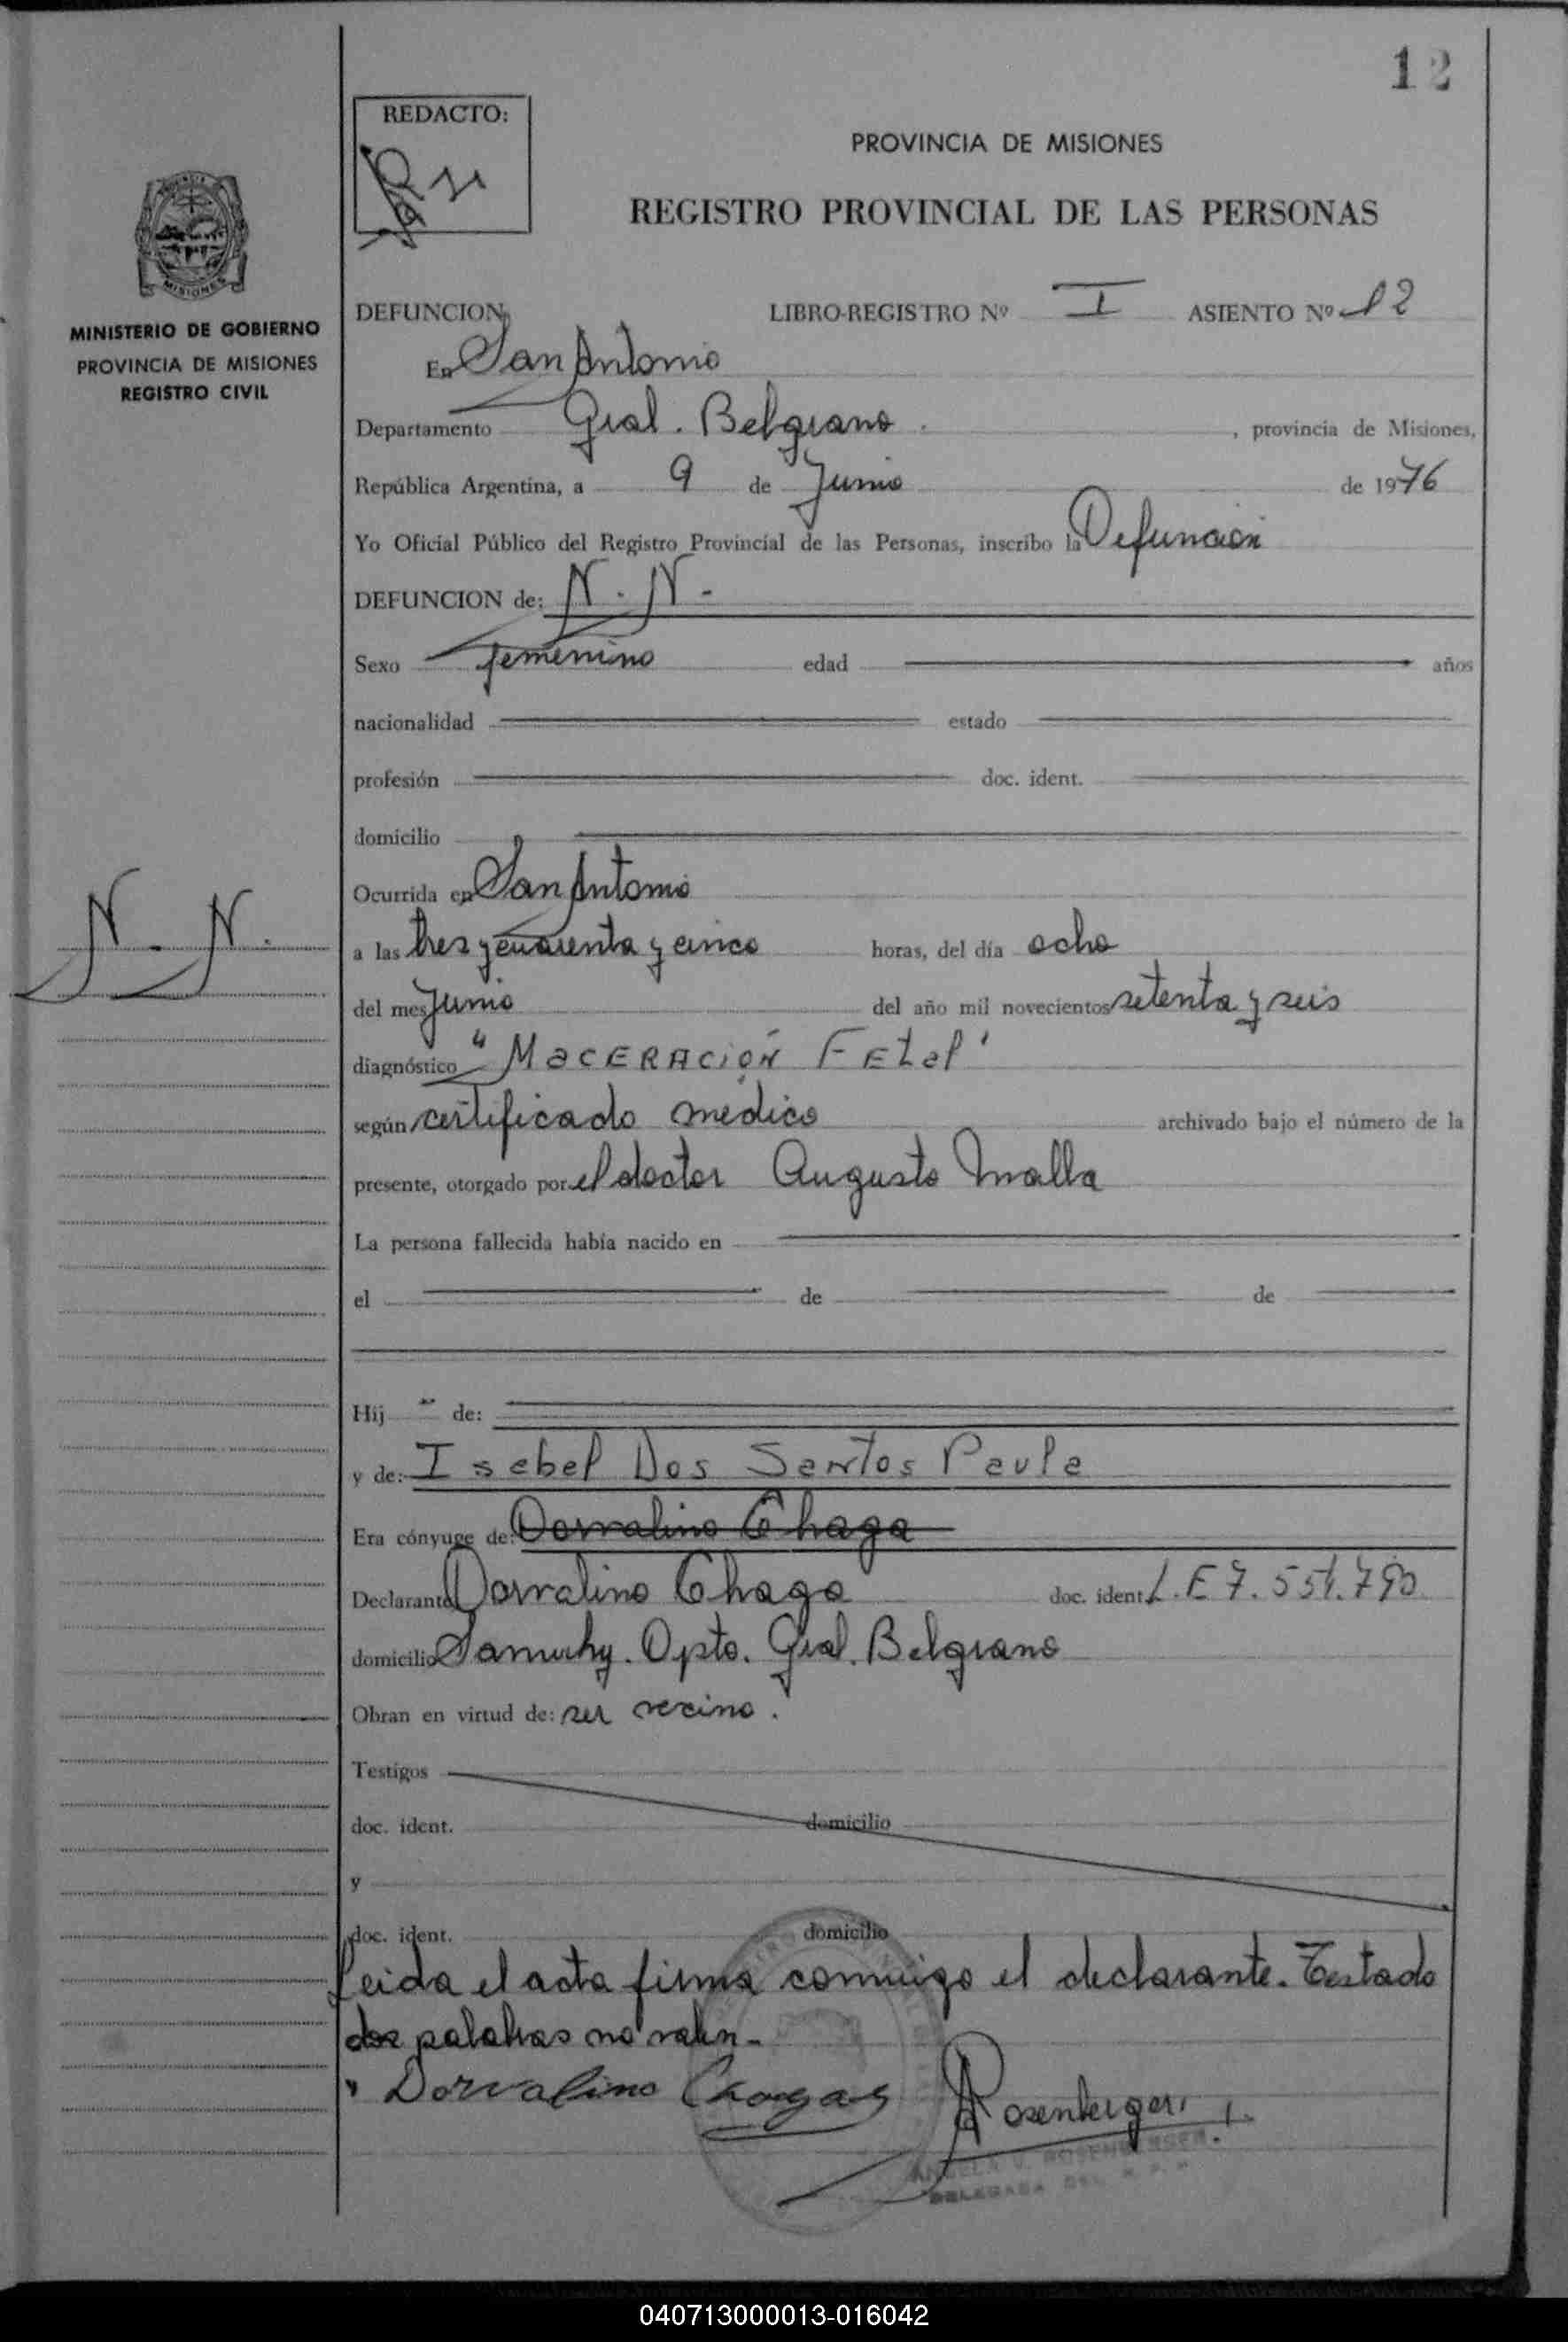 12
REDACTO:
PROVINCIA DE MISIONES
REGISTRO PROVINCIAL DE LAS PERSONAS
MISIONES
MINISTERIO DE GOBIERNO
PROVINCIA DE MISIONES
REGISTRO CIVIL
DEFUNCION, LIBRO-REGISTRO Nº I ASIENTO Nº 12
En San Antonio
Departamento Gral. Belgrano. , provincia de Misiones,
República Argentina, a 9 de Junio de 1976
Yo Oficial Público del Registro Provincial de las Personas, inscribo la Defunción
DEFUNCION de: N. N.-
Sexo femenino edad años
nacionalidad estado
profesión doc. ident.
domicilio
Ocurrida en San Antonio
N. N.
a las tres y cuarenta y cinco horas, del día ocho
del mes Junio del año mil novecientos setenta y seis
diagnóstico "MaCERACIÓN FEtal"
según certificado medico archivado bajo el número de la
presente, otorgado por el doctor Augusto Malla
La persona fallecida había nacido en
el de de
Hij de:
y de: Isabel Dos Santos Paula
Era cónyuge de: Dorvalino Chaga
Declarante Dorvalino Chaga doc. ident. L.E 7.551.790
domicilio Samuhy. Dpto. Gral. Belgrano
Obran en virtud de: ser vecino.
Testigos
doc. ident. domicilio
y
doc. ident. domicilio
Leida el acta firma conmigo el declarante. Testado
dos palabras no valen-
Dorvalino Chagas Rosenberger
ROSENBERGER
DELEGADA DEL R. P. P.
040713000013-016042